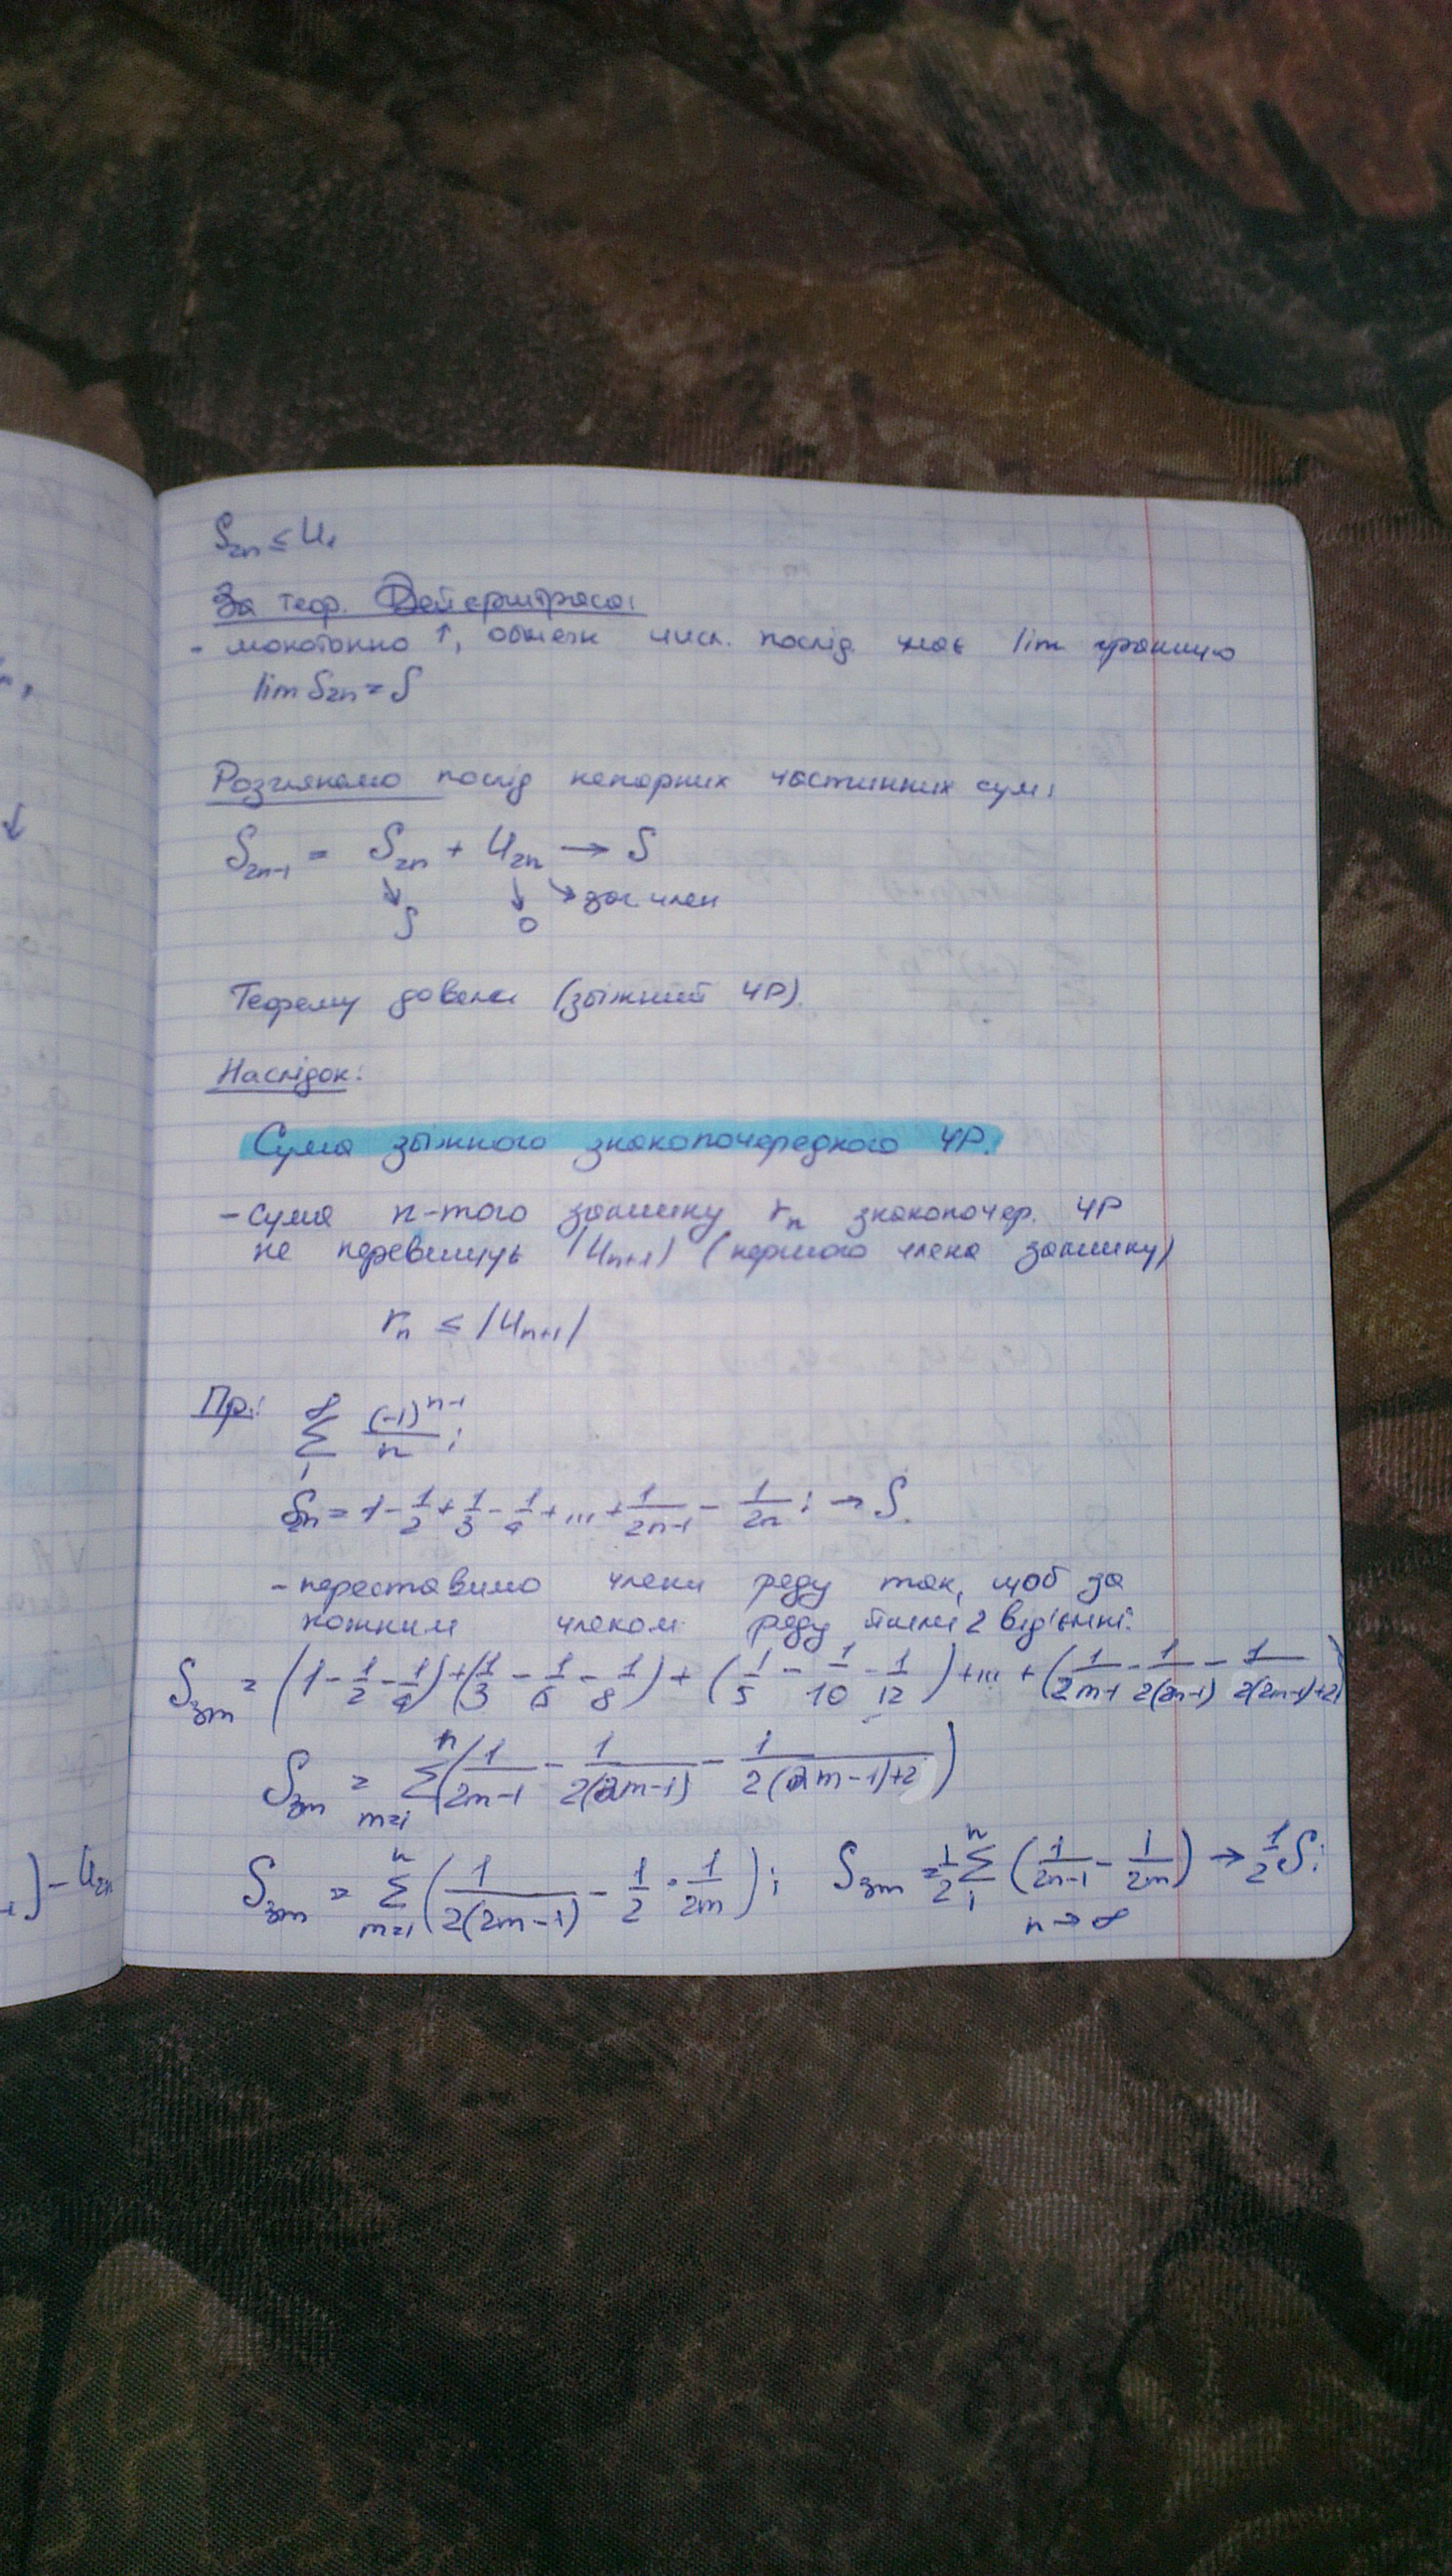 S₂ₙ ≤ U₁
За теор. Вейерштраса:
- монотонно ↑, обмежн числ. послід. має lim границю
lim S₂ₙ = S
Розглянемо послід непарних частинних сум:
S₂ₙ₋₁ = S₂ₙ + U₂ₙ → S
↓ ↓ ↘ заг член
S 0
Теорему довели (збіжний ЧР).
Наслідок:
Сума збіжного знакопочередного ЧР.
- сума n-того залишку rₙ знакопочер. ЧР
не перевищує |Uₙ₊₁| (першого члена залишку)
rₙ ≤ |Uₙ₊₁|
Пр: ∑₁^∞ (-1)^(n-1)/n ;
S₂ₙ = 1 - 1/2 + 1/3 - 1/4 + ... + 1/(2n-1) - 1/2n ; → S.
- переставимо члени ряду так, щоб за
кожним членом ряду йшли 2 від'ємні:
S₃ₘ = (1 - 1/2 - 1/4) + (1/3 - 1/6 - 1/8) + (1/5 - 1/10 - 1/12) + ... + (1/(2m-1) - 1/(2(2m-1)) - 1/(2(2m-1)+2))
S₃ₘ = ∑_(m=1)^n (1/(2m-1) - 1/(2(2m-1)) - 1/(2(2m-1)+2))
S₃ₘ = ∑_(m=1)^n (1/(2(2m-1)) - 1/2 · 1/2m) ; S₃ₘ = 1/2 ∑₁^n (1/(2n-1) - 1/2m) → 1/2 S ;
n → ∞
) - U₂ₙ